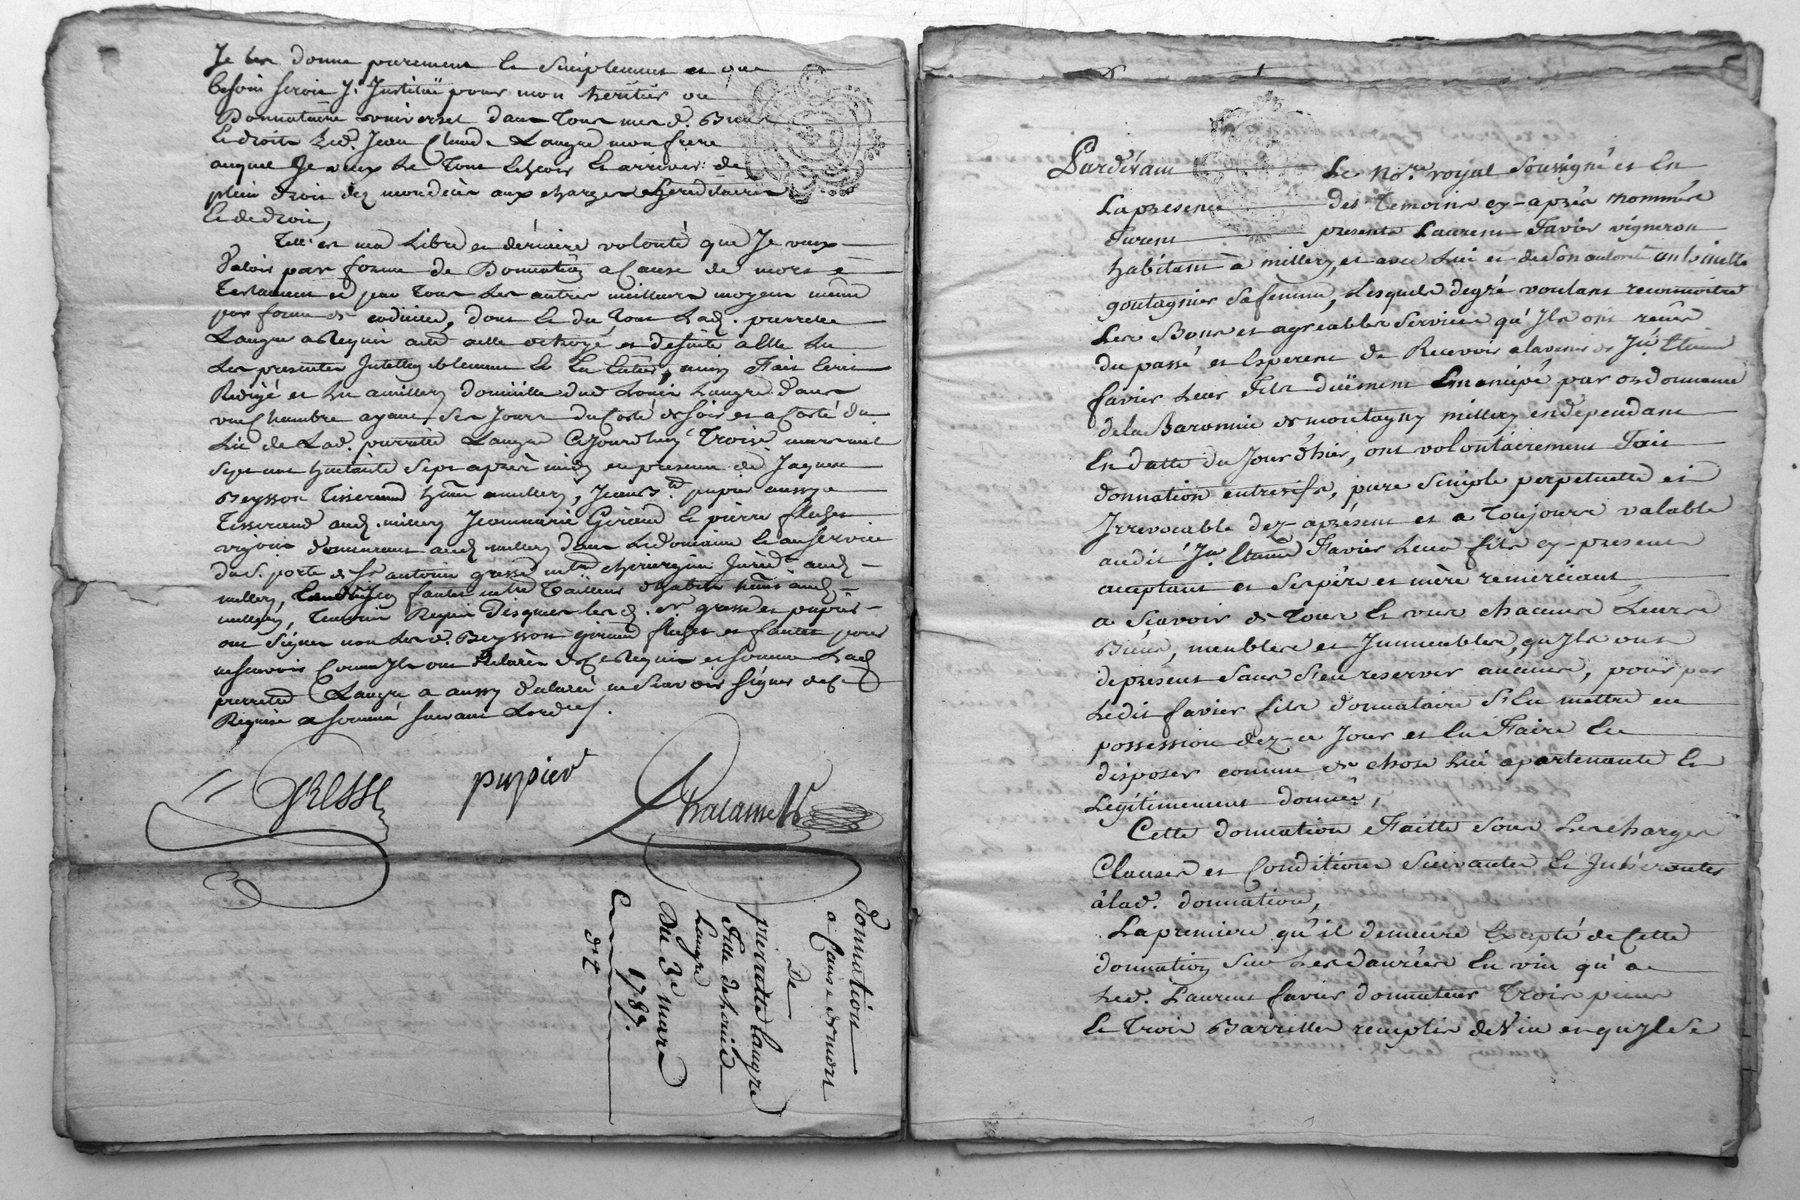 Je les donne purement et simplement et que
besoin seroit J'Institüe pour mon heritier ou
Donnataire universel dans tous mesd. Biens
et droits led. Jean Claude Langre mon frere
auquel Je veux le tout echoir et arriver de
plein droit dez mon décès aux charges héréditaires
et de droit,
Telle est ma libre et dérniere volonté que Je veux
valoir par forme de Donnation a cause de mort
testament et par tous les autres meilleurs moyens même
par forme de codicille, dont et du tout lad. pierrette
Langre a requis acte a elle octroyé
les presentes Intelligiblement et en entier, Fait
Redigé et Lu a millery domicille dud Louis Langre dans
une chambre ayant ses Jours du coté de soir et a coté du
Lit de Lad. pierrette Langre aJourd'huy Troise mars mil
sept cent huitante sept après midy en presence de Jaques
Beysson Tisserand a millery, pupier aussy
Tisserand aud. millery Jeanmarie Giraud et pierre
vigneron demeurant aud millery dans le domaine et au service
du S. porte et Sr antoine gresse mtre chirurgien Juré aud
millery, mtre Tailleur d'habits aud
millery, Temoins Requis Desquels lesd. Sr gresse et pupier
ont signer non lesd. Beysson giraud et pour
ne sçavoir comme Ils ont declaré de ce requis et sommé Lad
pierrette Langre a aussy declaré ne sçavoir signer de ce
Requise et sommée suivant Lord.
GRESSE pupier
donnation
a Cause de mort
De
pierrette langre
fille de Louis
Langre
Du 3e mars
1787.
Pardévant Le Nore royal soussigné et En
La presence des temoins cy-après nommés
Furent presents Laurent Favier vigneron
habitant à millery, et avec Lui et de son autorité antoinette
goutagnier sa femme, Lesquels degré voulans reconnoitre
Les Bons et agreables services qu'Ils ont reçus
du passé et Esperent de Recevoir a lavenir de Jn Etienne
favier Leur fils düement Emancipé par ordonnance
de la Baronnie de montagny millery en dependant
En datte du Jour d'hier, ont volontairement Fait
donnation entrevifs, pure simple perpetuelle et
Irrevocable dez-apresent et a Toujours valable
audit Jn. Etienne Favier Leur fils cy-present
acceptant et ses père et mère remerciant,
a Sçavoir de Tous Et uns chacuns Leurs
Biens, meubles et Immeubles, qu'Ils ont
depresent sans s'en reserver aucuns, pour par
Ledit favier fils donnataire s'En mettre en
possession dez-ce Jour et En Faire Et
disposer comme de chose Lui apartenante Et
Légitimement donnée,
Cette donnation Faitte sous Les charges
Clauses et Conditions suivantes Et Inhérentes
à lad. donnation,
La premiere qu'il demeure Excepté de Cette
donnation sur Les danrées En vin qu'a
Led. Laurent favier donnateur Trois pieces
Et Trois Barrilles remplis de Vin en qu'Ils se